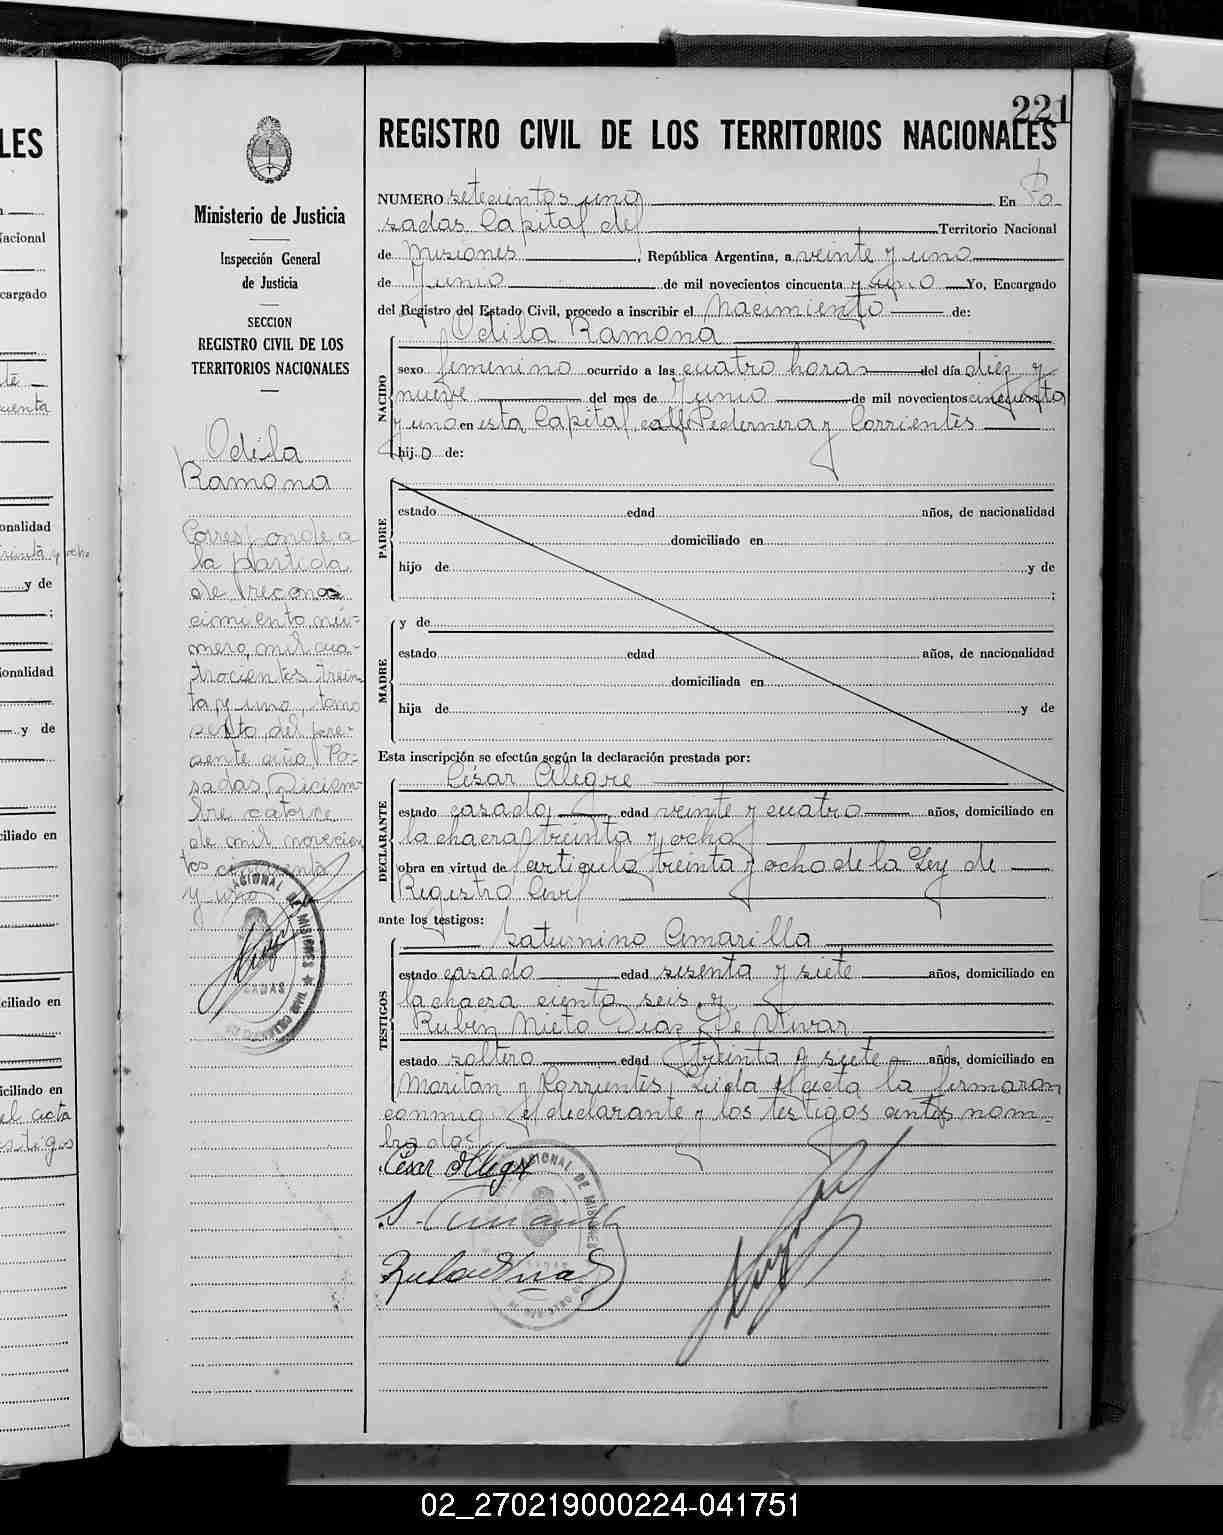 221
REGISTRO CIVIL DE LOS TERRITORIOS NACIONALES
Ministerio de Justicia
Inspección General
de Justicia
SECCION
REGISTRO CIVIL DE LOS
TERRITORIOS NACIONALES
Odila
Ramona
Corresponde a
la partida
de recono
cimiento nú-
mero, mil cua-
trocientos trein
ta y uno, tomo
sexto del pre-
sente año Po-
sadas, Diciem-
bre catorce
de mil novecien
tos cincuenta
y uno
NUMERO setecientos uno En Po-
sadas Capital del Territorio Nacional
de Misiones, República Argentina, a veinte y uno
de Junio de mil novecientos cincuenta y uno Yo, Encargado
del Registro del Estado Civil, procedo a inscribir el Nacimiento de:
Odila Ramona
NACIDO
sexo femenino ocurrido a las cuatro horas del día diez y
nueve del mes de Junio de mil novecientos cincuenta
y uno en esta Capital, calle Pedernera y Corrientes
hij o de:
PADRE
estado edad años, de nacionalidad
domiciliado en
hijo de y de
;
MADRE
y de
estado edad años, de nacionalidad
domiciliada en
hija de y de
Esta inscripción se efectúa según la declaración prestada por:
César Alegre
DECLARANTE
estado casado edad veinte y cuatro años, domiciliado en
la chacra treinta y ocho
obra en virtud de l artículo treinta y ocho de la Ley de
Registro Civil
ante los testigos:
Saturnino Amarilla
TESTIGOS
estado casado edad sesenta y siete años, domiciliado en
la chacra ciento seis y
Rubén Nieto Diaz De Vivar
estado soltero edad treinta y siete años, domiciliado en
Moritan y Corrientes, Leida el acta la firmaron
conmigo el declarante y los testigos antes nom-
brados
César Alegre
LES
Nacional
ncargado
cionalidad
y de
;
cionalidad
y de
ciliado en
ciliado en
iciliado en
el acta
NACIONAL DE MISIONES
02_270219000224-041751